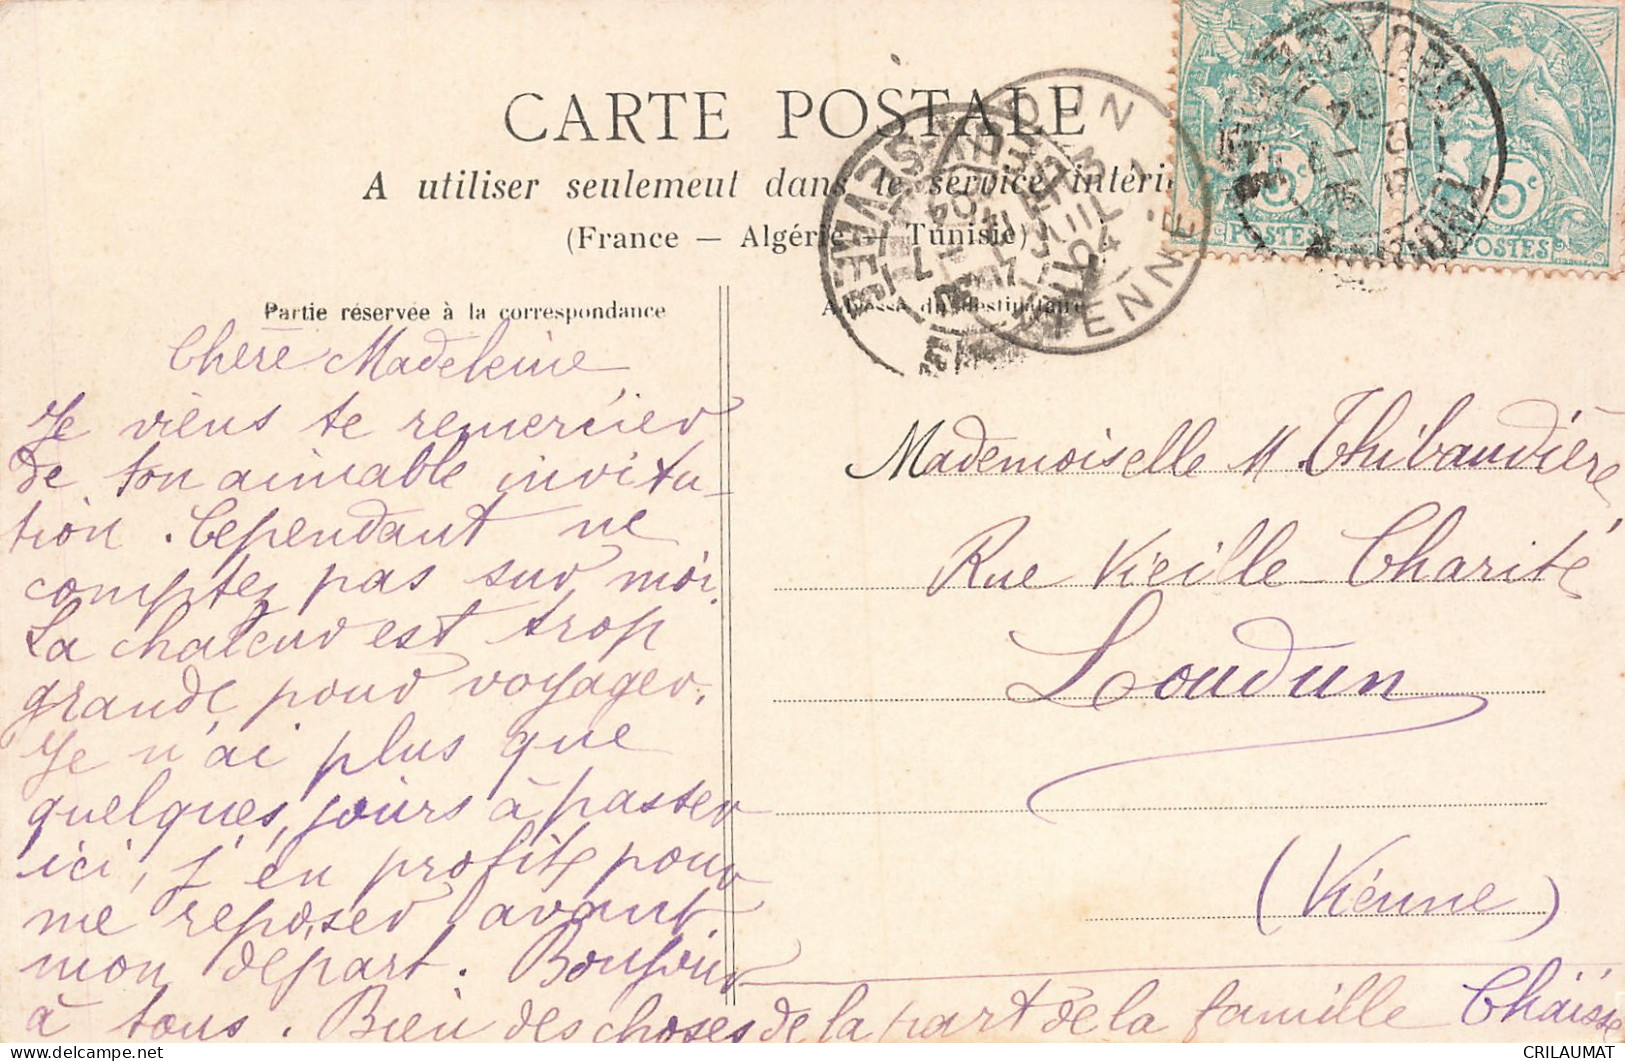 CARTE POSTALE
A utiliser seulement dans le service intéri
(France — Algérie — Tunisie)
Partie réservée à la correspondance
Adresse du destinataire
Chère Madeleine
Je viens te remercier
de ton aimable invita-
tion. Cependant ne
comptez pas sur moi.
La chaleur est trop
grande pour voyager.
Je n'ai plus que
quelques jours à passer
ici, j'en profite pour
me reposer avant
mon départ. Bonjour
à tous. Bien des choses de la part de la famille Chaisse
Mademoiselle M Thibaudière
Rue Vieille Charité
Loudun
(Vienne)
LOUDUN
VIENNE
04
5c
POSTES
5c
POSTES
CRILAUMAT